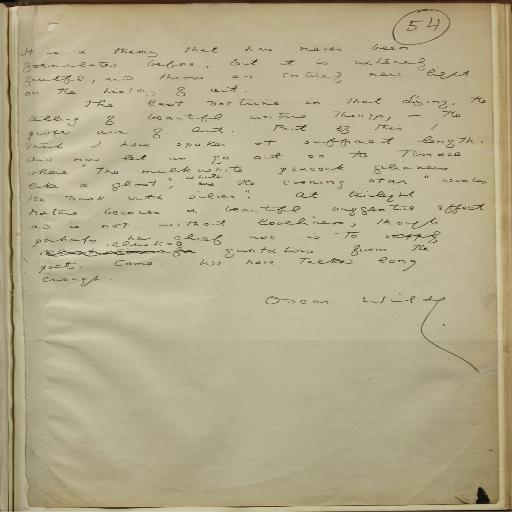 54
It is a theory that has never been
formulated before, but it is extremely
fruitful, and throws an entirely new light
on the history of art.
The last doctrine is that Lying, the
telling of beautiful untrue things, is the
proper aim of Art. But of this I
think I have spoken at sufficient length.
And now let us go out on the Terrace
where "the milk white peacock glimmers
like a ghost", while the evening star "washes
the dusk with silver". At twilight
nature becomes a beautiful suggestive effect
and is not without loveliness, though
perhaps her chief use is to
illustrate quotations from the
poets. Come. We have talked long
enough.
Oscar Wilde